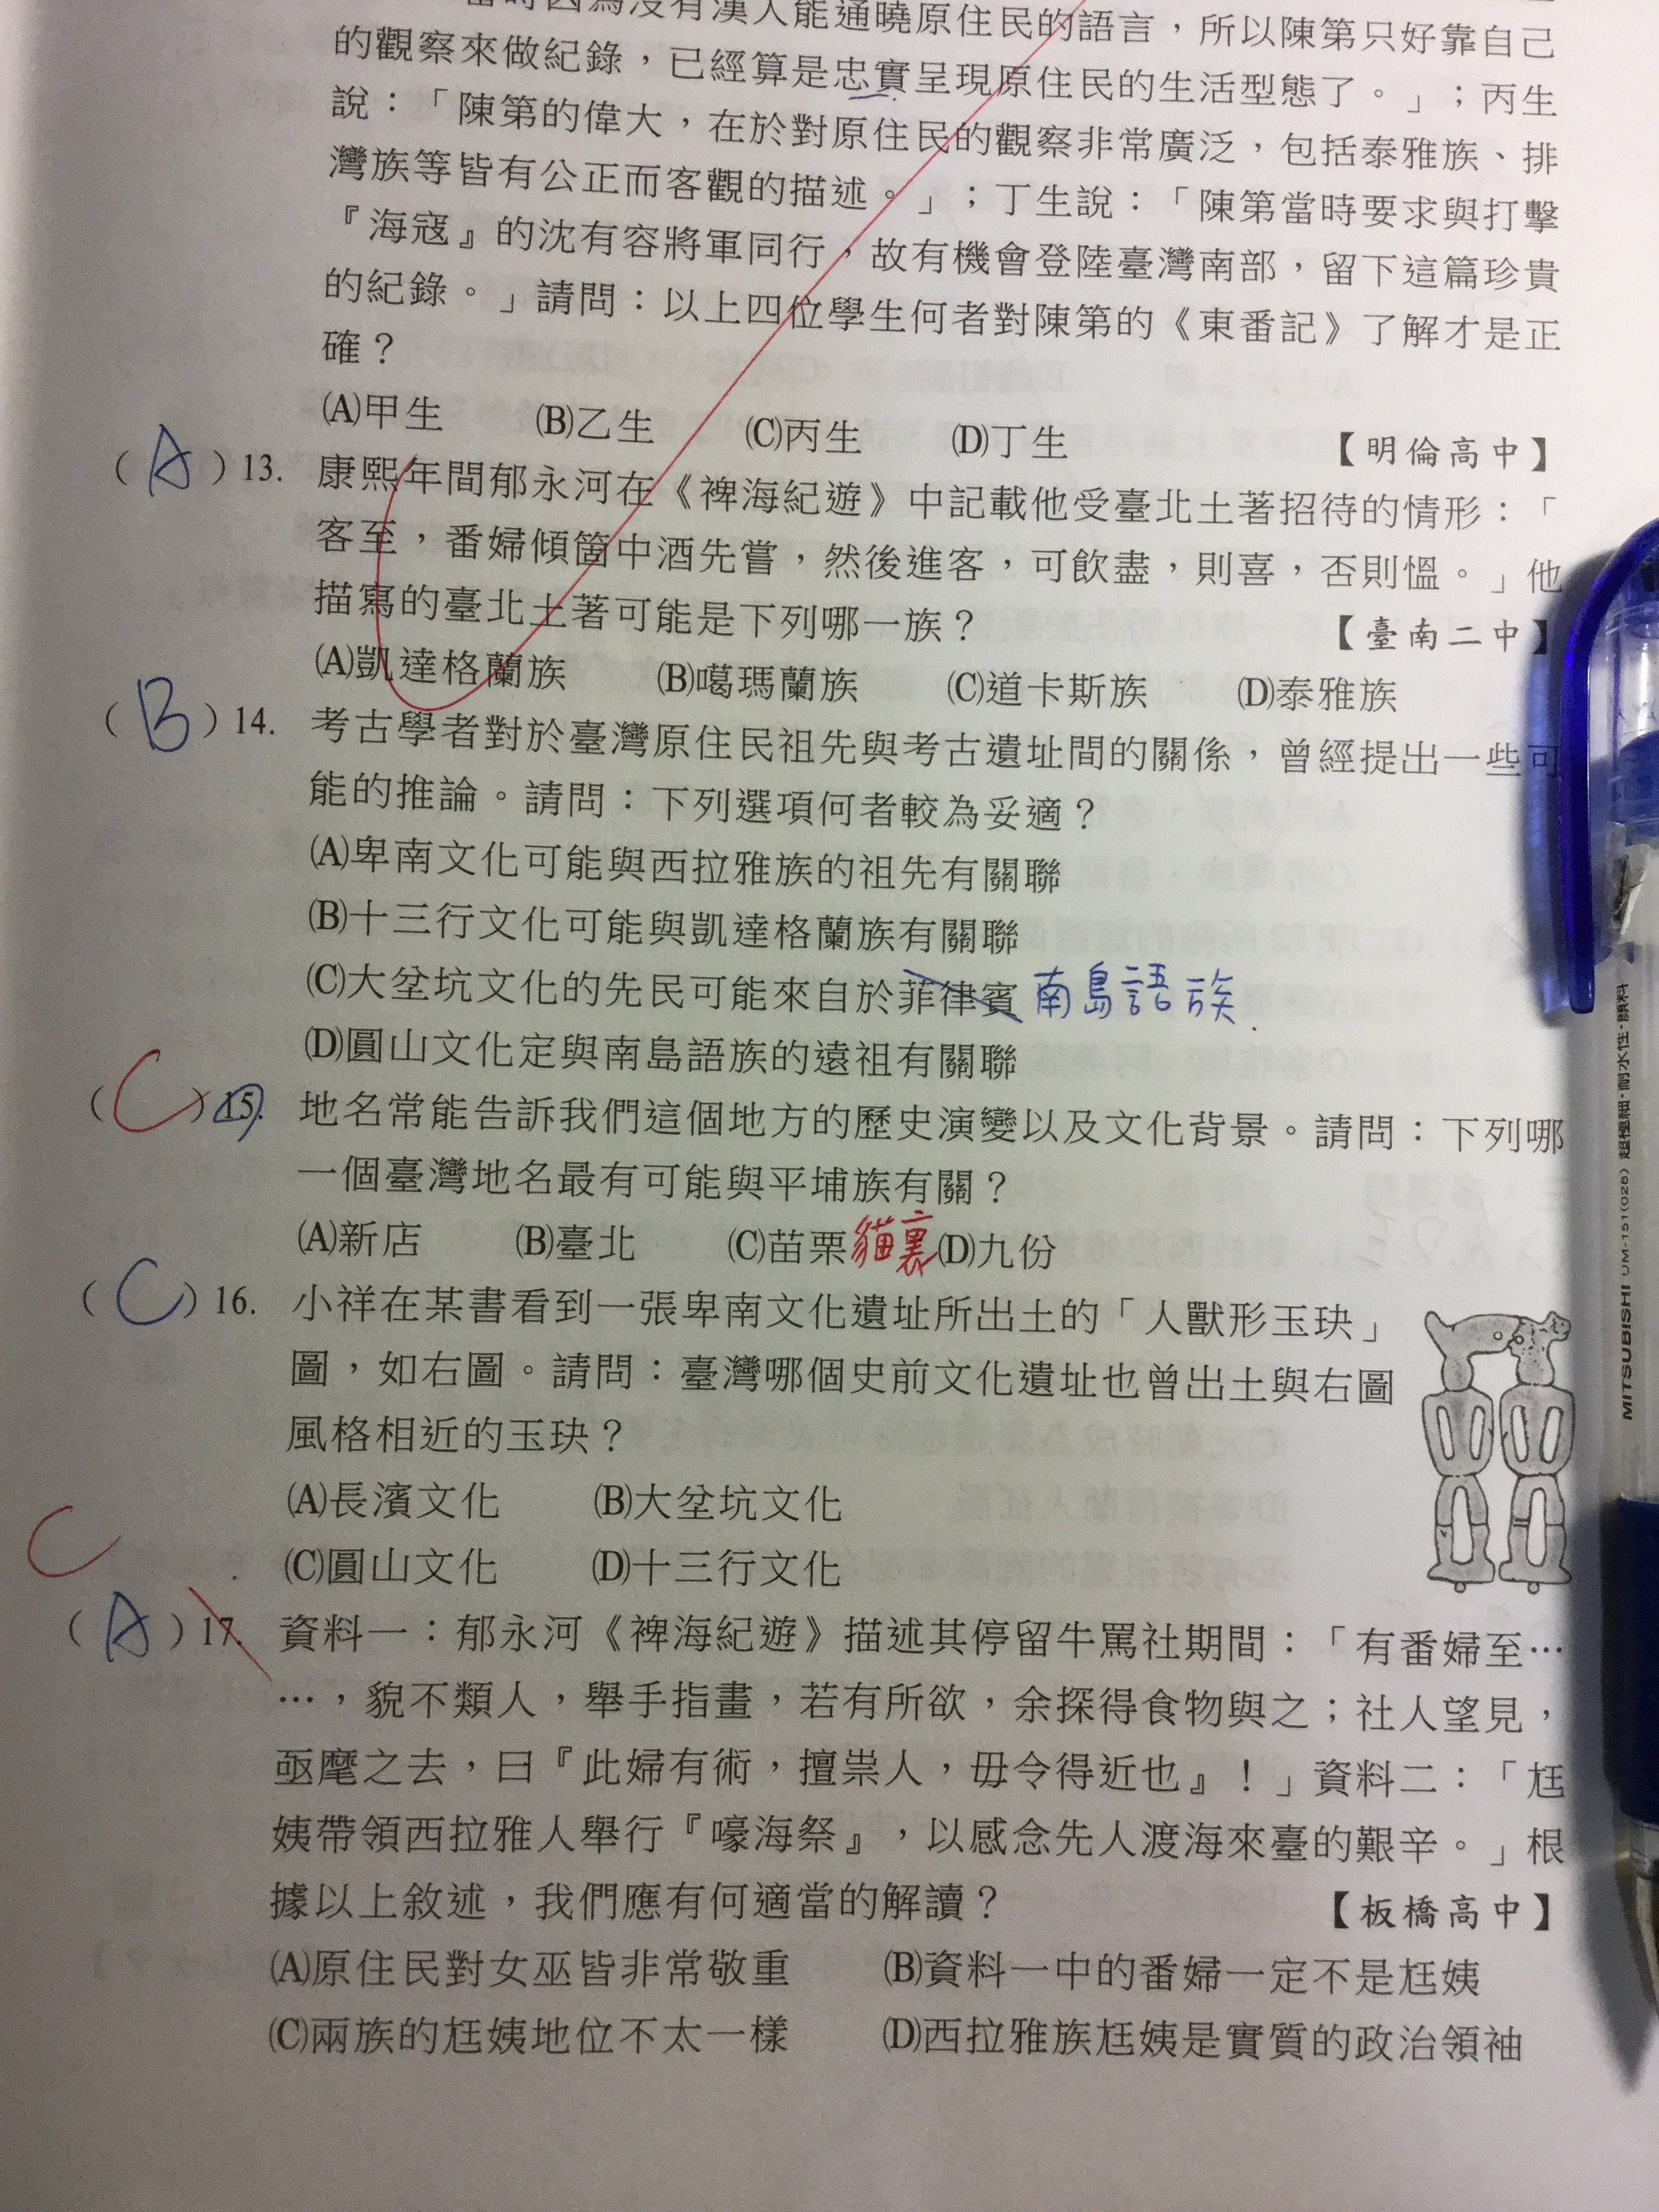 當時因為沒有漢人能通曉原住民的語言，所以陳第只好靠自己
的觀察來做紀錄，已經算是忠實呈現原住民的生活型態了。」；丙生
說：「陳第的偉大，在於對原住民的觀察非常廣泛，包括泰雅族、排
灣族等皆有公正而客觀的描述。」；丁生說：「陳第當時要求與打擊
『海寇』的沈有容將軍同行，故有機會登陸臺灣南部，留下這篇珍貴
的紀錄。」請問：以上四位學生何者對陳第的《東番記》了解才是正
確？
(A)甲生 (B)乙生 (C)丙生 (D)丁生 【明倫高中】
（A）13. 康熙年間郁永河在《裨海紀遊》中記載他受臺北土著招待的情形：「
客至，番婦傾箇中酒先嘗，然後進客，可飲盡，則喜，否則慍。」他
描寫的臺北土著可能是下列哪一族？ 【臺南二中】
(A)凱達格蘭族 (B)噶瑪蘭族 (C)道卡斯族 (D)泰雅族
（B）14. 考古學者對於臺灣原住民祖先與考古遺址間的關係，曾經提出一些可
能的推論。請問：下列選項何者較為妥適？
(A)卑南文化可能與西拉雅族的祖先有關聯
(B)十三行文化可能與凱達格蘭族有關聯
(C)大坌坑文化的先民可能來自於菲律賓 南島語族.
(D)圓山文化定與南島語族的遠祖有關聯
（C）15. 地名常能告訴我們這個地方的歷史演變以及文化背景。請問：下列哪
一個臺灣地名最有可能與平埔族有關？
(A)新店 (B)臺北 (C)苗栗 貓裏 (D)九份
（C）16. 小祥在某書看到一張卑南文化遺址所出土的「人獸形玉玦」
圖，如右圖。請問：臺灣哪個史前文化遺址也曾出土與右圖
風格相近的玉玦？
(A)長濱文化 (B)大坌坑文化
(C)圓山文化 (D)十三行文化
C
（A）17. 資料一：郁永河《裨海紀遊》描述其停留牛罵社期間：「有番婦至…
…，貌不類人，舉手指畫，若有所欲，余探得食物與之；社人望見，
亟麾之去，曰『此婦有術，擅祟人，毋令得近也』！」資料二：「尪
姨帶領西拉雅人舉行『嚎海祭』，以感念先人渡海來臺的艱辛。」根
據以上敘述，我們應有何適當的解讀？ 【板橋高中】
(A)原住民對女巫皆非常敬重 (B)資料一中的番婦一定不是尪姨
(C)兩族的尪姨地位不太一樣 (D)西拉雅族尪姨是實質的政治領袖
MITSUBISHI UM-151(028) 超極細・耐水性・顔料